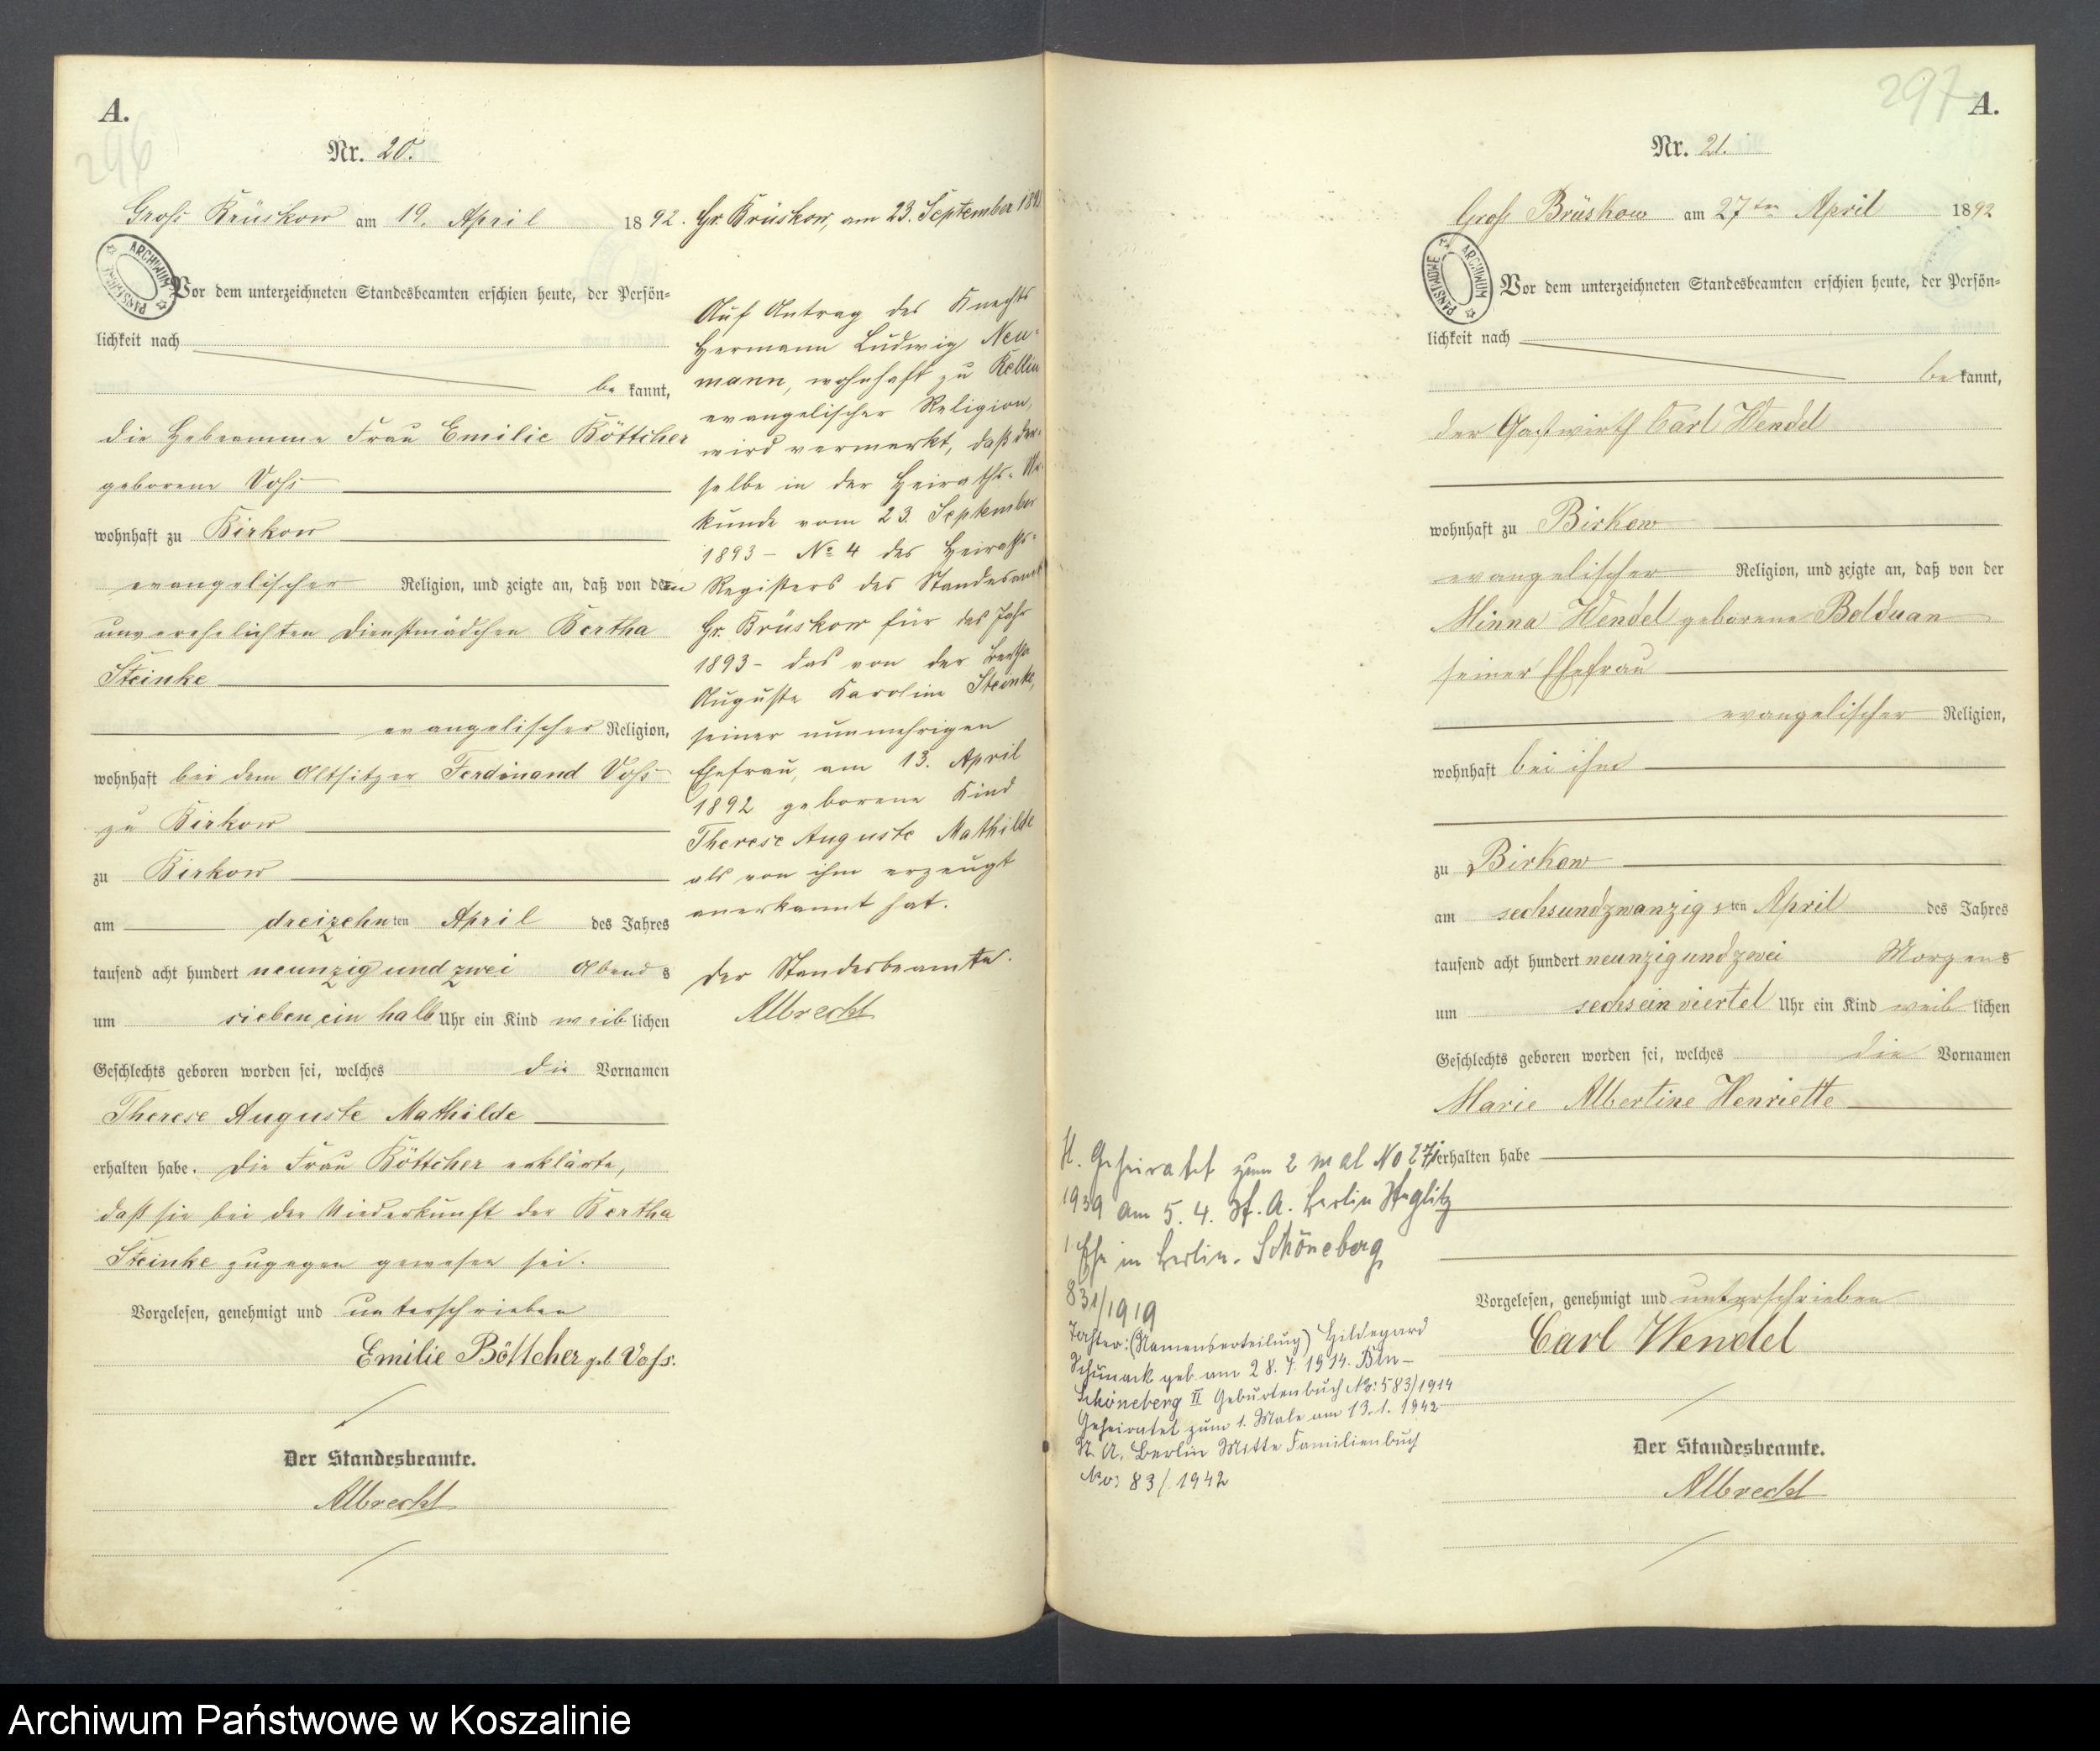 A.
296
Nr. 20.
Gross Brüskow am 19. April 1892.
ARCHIWUM PAŃSTWOWE
Vor dem unterzeichneten Standesbeamten erschien heute, der Persön-
lichkeit nach
be kannt,
die Hebeamme Frau Emilie Böttcher
geborene Voss
wohnhaft zu Birkow
evangelischer Religion, und zeigte an, daß von dem
unverehelichten Dienstmädchen Bertha
Steinke
evangelischer Religion,
wohnhaft bei dem Altsitzer Ferdinand Voss
zu Birkow
zu Birkow
am dreizehnten April des Jahres
tausend acht hundert neunzig und zwei Abends
um sieben ein halb Uhr ein Kind weiblichen
Geschlechts geboren worden sei, welches die Vornamen
Therese Auguste Mathilde
erhalten habe. Die Frau Böttcher erklärte,
daß sie bei der Niederkunft der Bertha
Steinke zugegen gewesen sei.
Vorgelesen, genehmigt und unterschrieben
Emilie Böttcher geb Voss.
Der Standesbeamte.
Albrecht
Gr. Brüskow, am 23. September
Auf Antrag des Knechts
Hermann Ludwig Neu-
mann, wohnhaft zu Rellin
evangelischer Religion,
wird vermerkt, daß der-
selbe in der Heiraths-Ur-
kunde vom 23. September
1893 - No 4 des Heiraths-
Registers des Standesamts
Gr. Brüskow für das Jahr
1893 - das von der Bertha
Auguste Karoline Steinke,
seiner nunmehrigen
Ehefrau, am 13. April
1892 geborene Kind
Therese Auguste Mathilde
als von ihm erzeugt
anerkannt hat.
Der Standesbeamte.
Albrecht
297
A.
Nr. 21.
Gross Brüskow am 27ten April 1892
PAŃSTWOWE ARCHIWUM
Vor dem unterzeichneten Standesbeamten erschien heute, der Persön-
lichkeit nach
be kannt,
der Gastwirth Carl Wendel
wohnhaft zu Birkow
evangelischer Religion, und zeigte an, daß von der
Minna Wendel geborene Bolduan
seiner Ehefrau
evangelischer Religion,
wohnhaft bei ihm
zu Birkow
am sechsundzwanzigsten April des Jahres
tausend acht hundert neunzigundzwei Morgens
um sechs ein viertel Uhr ein Kind weiblichen
Geschlechts geboren worden sei, welches die Vornamen
Marie Albertine Henriette
erhalten habe
Vorgelesen, genehmigt und unterschrieben
Carl Wendel
Der Standesbeamte.
Albrecht
H. Geheiratet zum 2 mal No 271
1939 am 5. 4. St. A. Berlin Steglitz
1 Ehe in Berlin-Schöneberg
831/1919
Tochter: (Namenserteilung) Hildegard
Schunack geb. am 28. 7. 1914. Bln-
Schöneberg II Geburtenbuch No: 583/1914
Geheiratet zum 1. Male am 13. 1. 1942
St. A. Berlin Mitte Familienbuch
No: 83/1942
Archiwum Państwowe w Koszalinie